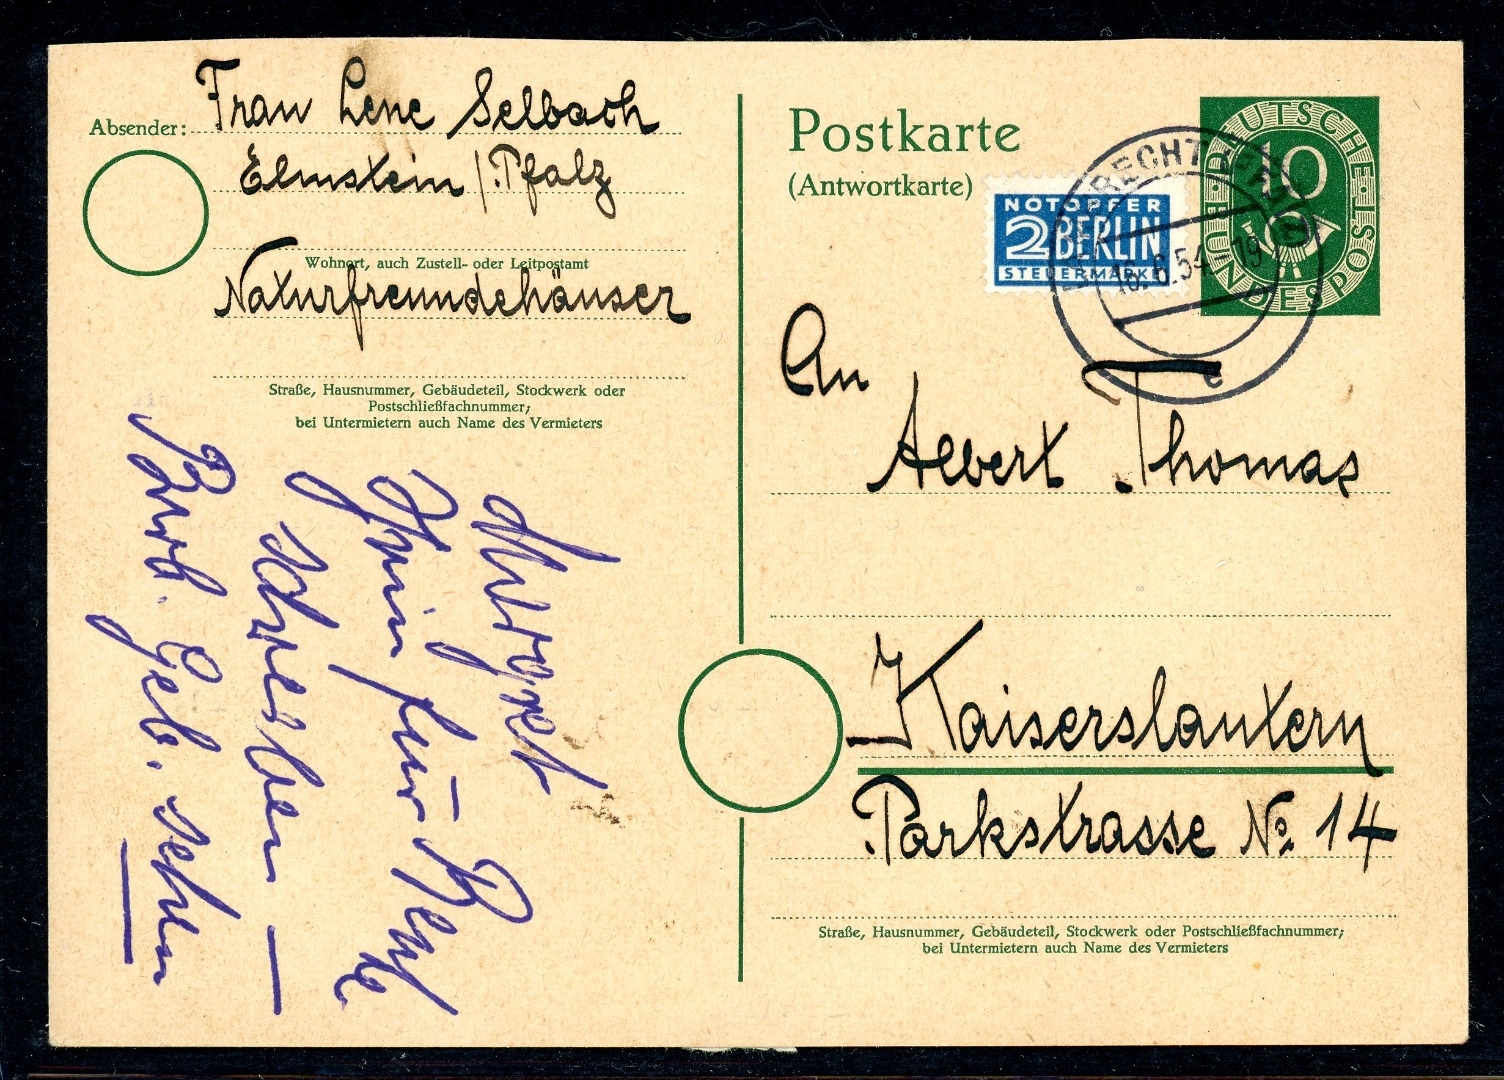 Absender: Frau Lene Selbach
Elmstein / Pfalz
Wohnort, auch Zustell- oder Leitpostamt
Naturfreundehäuser
Straße, Hausnummer, Gebäudeteil, Stockwerk oder
Postschließfachnummer;
bei Untermietern auch Name des Vermieters
Postkarte
(Antwortkarte)
NOTOPFER
2 BERLIN
STEUERMARKE
DEUTSCHE BUNDESPOST
10
16.6.54.-19
c
An
Albert Thomas
Kaiserslautern
Parkstrasse № 14
Straße, Hausnummer, Gebäudeteil, Stockwerk oder Postschließfachnummer;
bei Untermietern auch Name des Vermieters
für
schreiben —
Geb. sehen